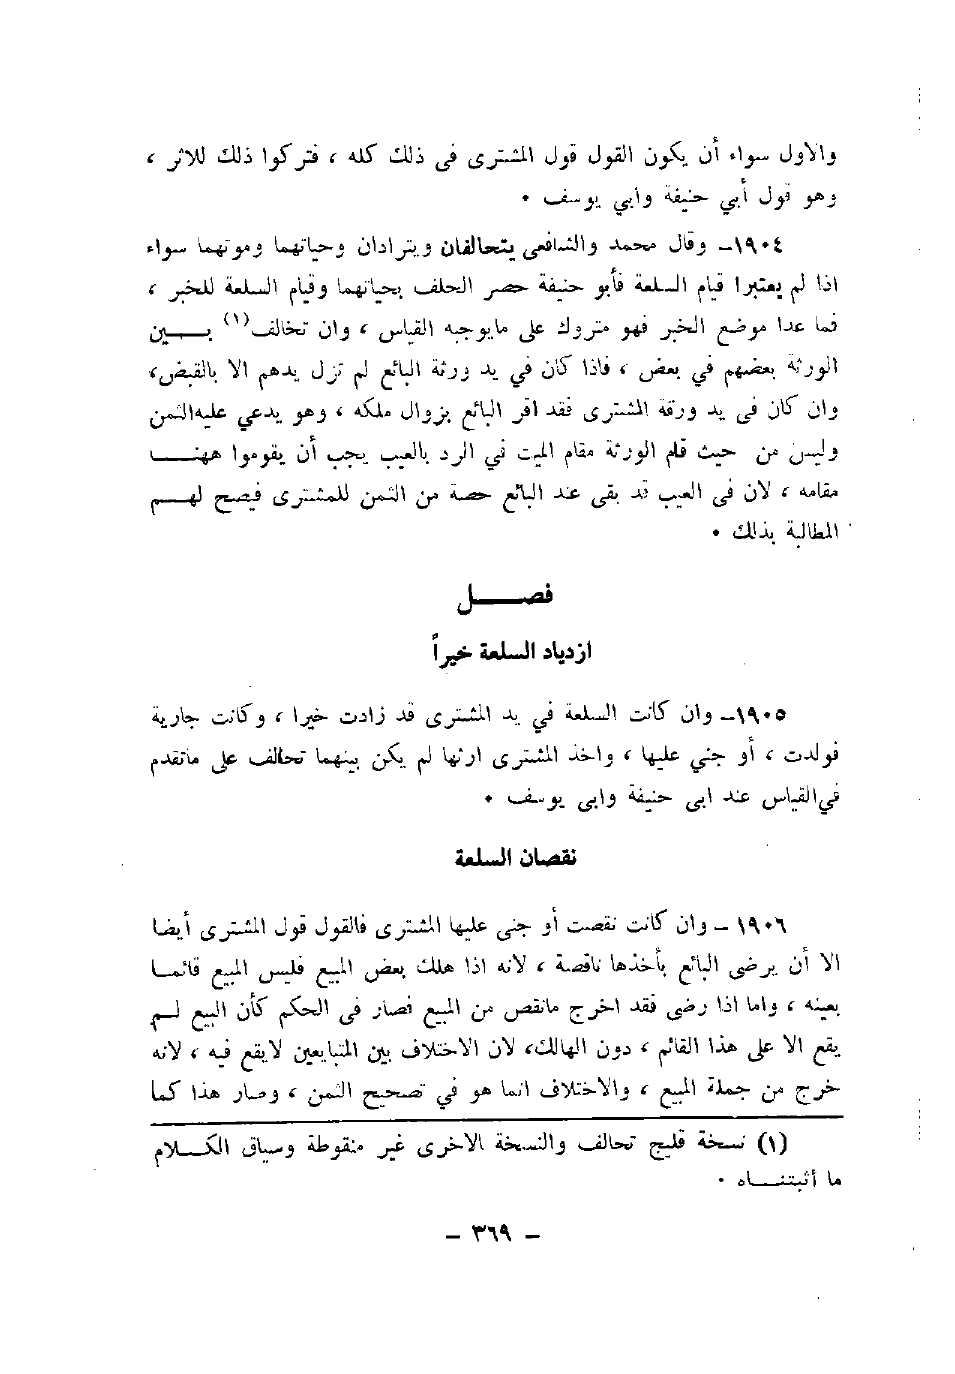 والاول سواء أن يكون القول قول المشترى فى ذلك كله ، فتركوا ذلك للاثر ،
وهو قول أبي حنيفة وابي يوسف ٠
١٩٠٤ـ وقال محمد والشافعى يتحالفان ويترادان وحياتهما وموتهما سواء
اذا لم يعتبرا قيام السلعة فأبو حنيفة حصر الحلف بحياتهما وقيام السلعة للخبر ،
فما عدا موضع الخبر فهو متروك على مايوجبه القياس ، وان تخالف(١) بـــين
الورثة بعضهم في بعض ، فاذا كان في يد ورثة البائع لم تزل يدهم الا بالقبض،
وان كان فى يد ورقة المشترى فقد اقر البائع بزوال ملكه ، وهو يدعي عليه الثمن
وليس من حيث قام الورثة مقام الميت في الرد بالعيب يجب أن يقوموا ههنـــا
مقامه ، لان فى العيب قد بقى عند البائع حصة من الثمن للمشترى فيصح لهـــم
المطالبة بذلك ٠
فصـــــل
ازدياد السلعة خيراً
١٩٠٥ـ وان كانت السلعة في يد المشترى قد زادت خيرا ، وكانت جارية
فولدت ، أو جني عليها ، واخذ المشترى ارثها لم يكن بينهما تحالف على ماتقدم
في القياس عند ابى حنيفة وابى يوسف ٠
نقصان السلعة
١٩٠٦ ـ وان كانت نقصت أو جنى عليها المشترى فالقول قول المشترى أيضا
الا أن يرضى البائع بأخذها ناقصة ، لانه اذا هلك بعض المبيع فليس المبيع قائمـا
بعينه ، واما اذا رضى فقد اخرج مانقص من المبيع فصار فى الحكم كأن البيع لـم
يقع الا على هذا القائم ، دون الهالك، لان الاختلاف بين المتبايعين لايقع فيه ، لانه
خرج من جملة المبيع ، والاختلاف انما هو في تصحيح الثمن ، وصار هذا كما
(١) نسخة قليج تحالف والنسخة الاخرى غير منقوطة وسياق الكـــلام
ما أثبتنـــاه ٠
ـ ٣٦٩ ـ